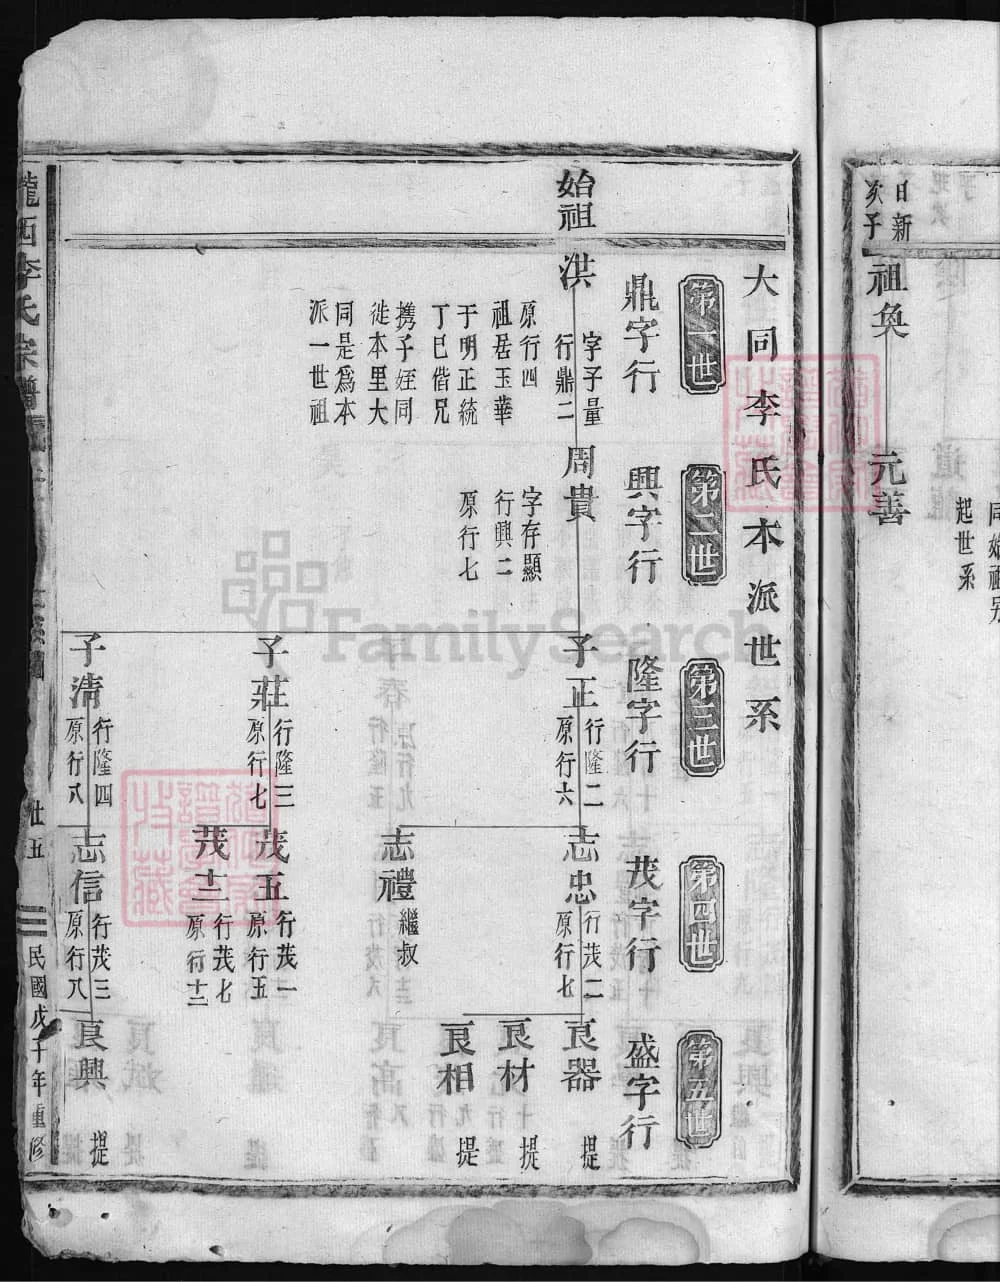 日新
次子
祖奐
元善
起世系
大同李氏本派世系
第一世
第二世
第三世
第四世
第五世
鼎字行
興字行
隆字行
茂字行
盛字行
始祖
洪
字子量
行鼎二
原行四
祖居玉華
于明正統
丁巳偕兄
携子姪同
徙本里大
同是爲本
派一世祖
周貴
字存顯
行興二
原行七
子正
行隆二
原行六
志忠
行茂二
原行七
良器
提
良材
提
良相
提
志禮
繼叔
子莊
行隆三
原行七
茂五
行茂一
原行五
茂十二
行茂七
原行十二
子清
行隆四
原行八
志信
行茂三
原行八
良興
提
隴西李氏宗譜
廿五
民國戊子年重修
FamilySearch